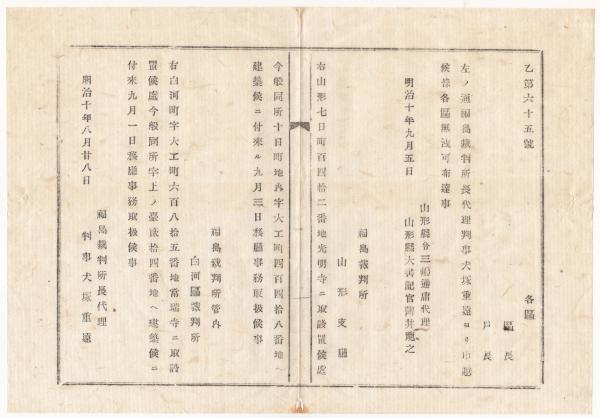 乙第六十五號
各區
區長
戸長
左ノ通福島裁判所長代理判事犬塚重遠ヨリ申越
候條各區無洩可布達事
明治十年九月五日
山形縣令三島通庸代理
山形縣大書記官薄井龍之
福島裁判所
山形支廳
右山形七日町百四拾二番地光明寺ニ取設置候處
今般同所十日町地內字大工町四百四拾八番地ヘ
建築候ニ付來ル九月三日務廳事務取扱候事
福島裁判所管內
白河區裁判所
右白河町字大工町六百八拾五番地常瑞寺ニ取設
置候處今般同所字上ノ臺貳拾四番地ヘ建築候ニ
付來九月一日務廳事務取扱候事
福島裁判所長代理
明治十年八月廿八日
判事犬塚重遠